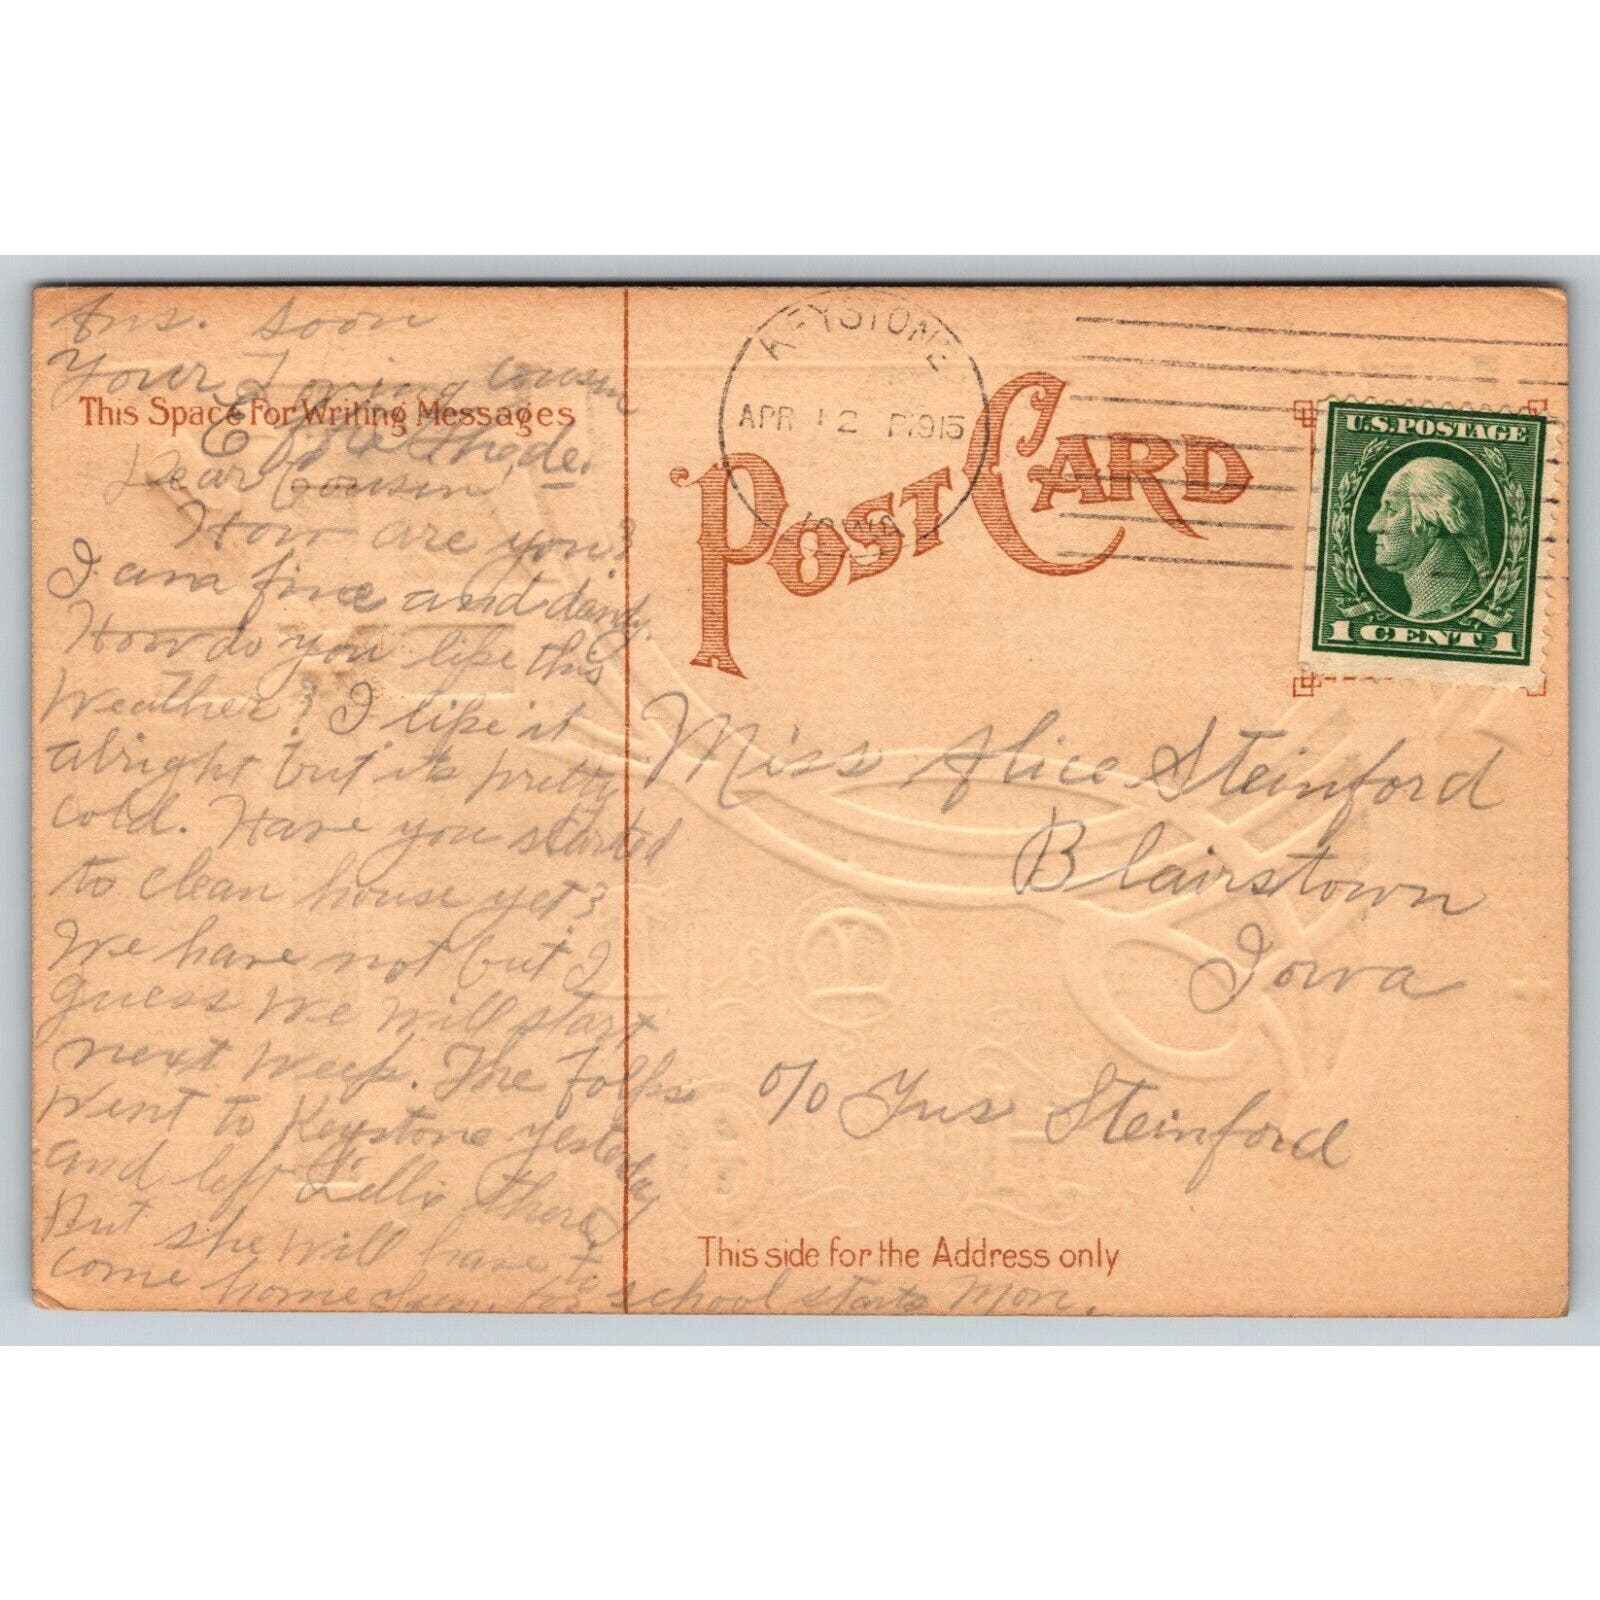 Ans. Soon
Your Loving cousin
This Space For Writing Messages
Rhode.
Dear Cousin,
How are you?
I am fine and dandy.
How do you like this
Weather? I like it
alright but it's pretty
cold. Have you started
to clean house yet?
We have not but I
guess We will start
next Week. The Folks
Went to Keystone yesterday
and left there,
But she will have to
come home Sun. for school starts Mon.
KEYSTONE
APR 12 P 1915
IOWA
POST CARD
U.S. POSTAGE
1 CENT 1
Miss Alice Steinford
Blairstown
Iowa
c/o Gus Steinford
This side for the Address only